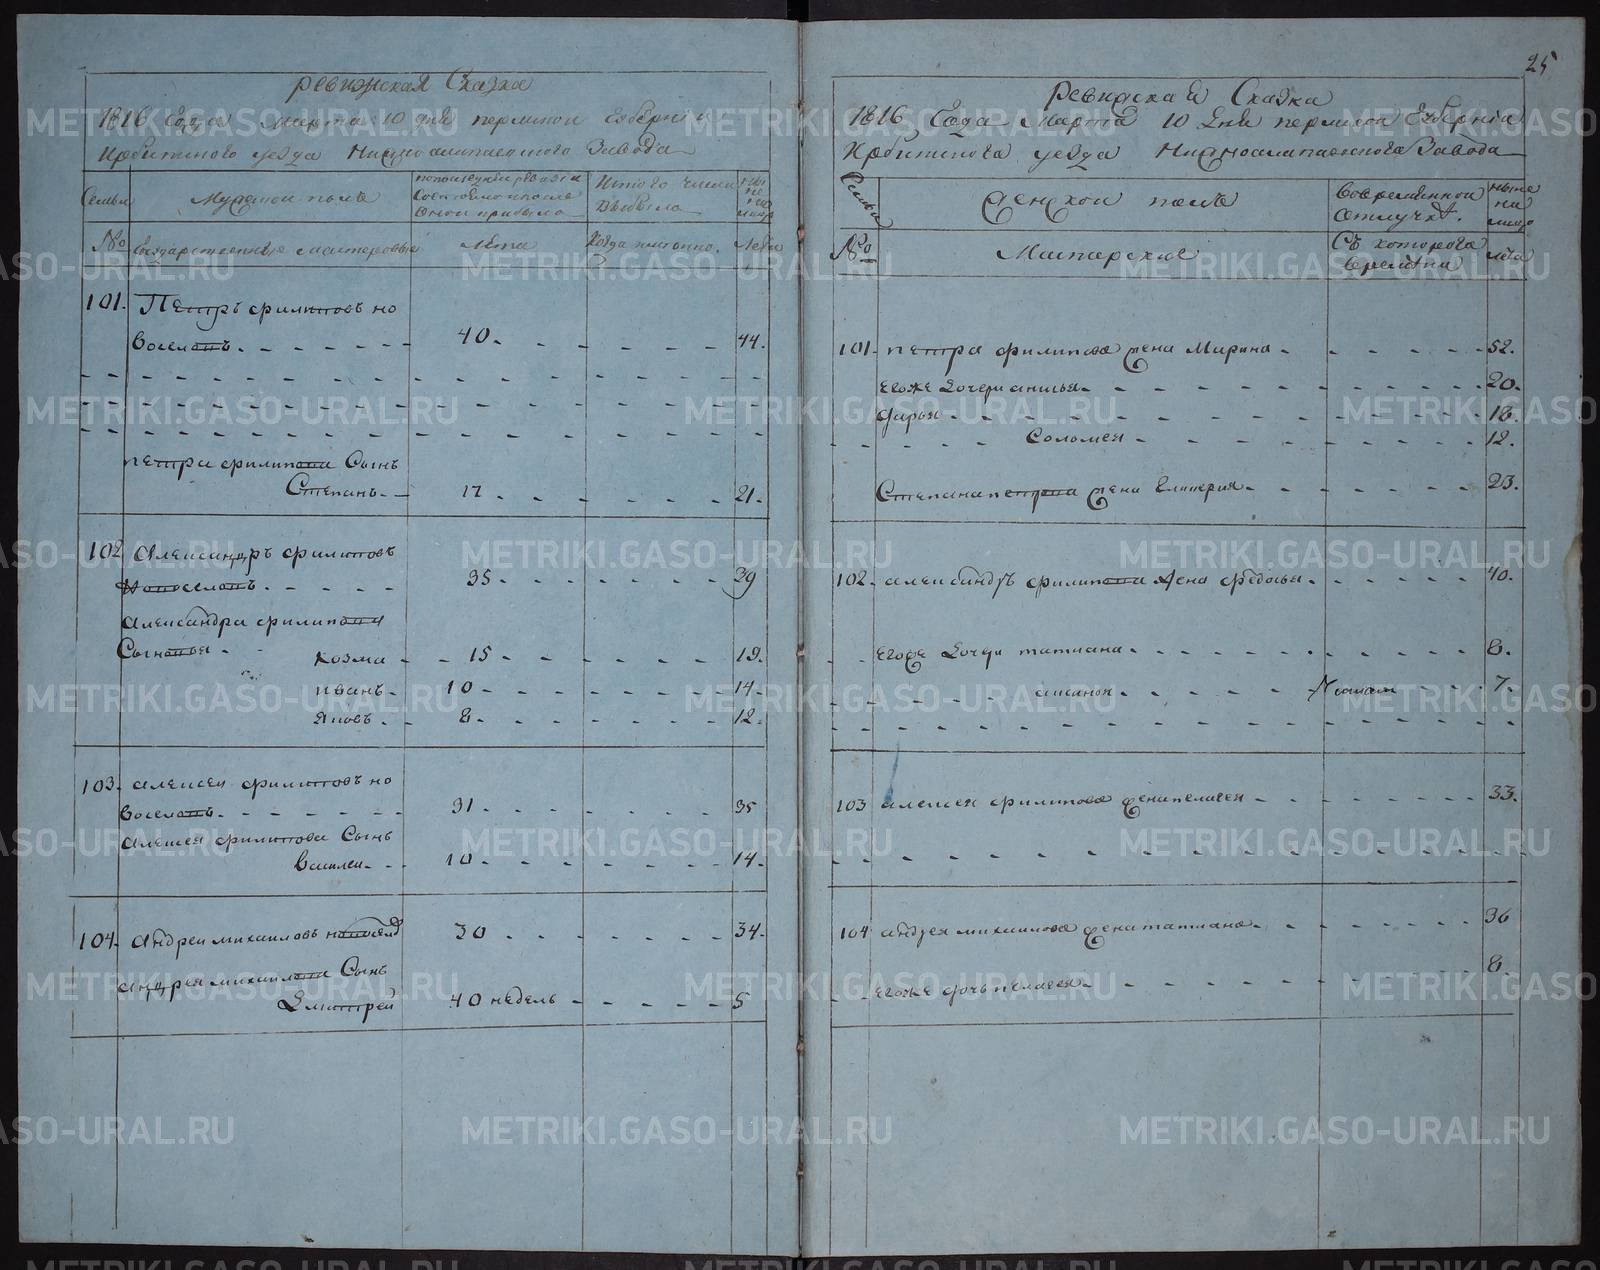 Ревижская Сказка
1816 Года Марта 10 дня пермской Губернии
Ирбитского уезда Нижноалапаевского Завода
Семьи
Мужеской полъ
Состояло и после
оной прибыло
Изтого числа
выбыло
№ Государственные мастеровые
лета
Когда имянно.
Лета
101. Петръ филиповъ но
воселовъ. 40. 44.
петра филипова Сынъ
Степанъ 17 21.
102 Александръ филиповъ
Новоселовъ. 35. 39
Александра филипова
Сыновья
козма 15. 19.
иванъ 10 14.
Яковъ 8. 12.
103. алексеи филиповъ но
воселовъ. 31. 35
алексея филипова Сынъ
василеи 10. 14.
104. Андреи михаиловъ новосело 30 34.
андрея михаилова Сынъ
Дмитреи 40 недель 5
25
Ревижская Сказка
1816 Года Марта 10 Дня пермской Губернии
Ирбитского уезда Нижноалапаевского Завода
Семьи
Женской полъ
Вовременной
отлучке.
ныне
на
лицо
№
Мастерские
Съ которого
времени
лета
101. петра филипова жена Марина 52.
егоже Дочери анисья 20.
дарья 18.
Соломея 12.
Степана петрова жена Екатерина 23.
102. александръ филипова жена федосья 40.
егоже Дочери татиана 8.
7.
103 алексея филипова жена пелагея 33.
104 андрея михаилова жена татиана 36
егоже дочь пелагея 8.
METRIKI.GASO-URAL.RU